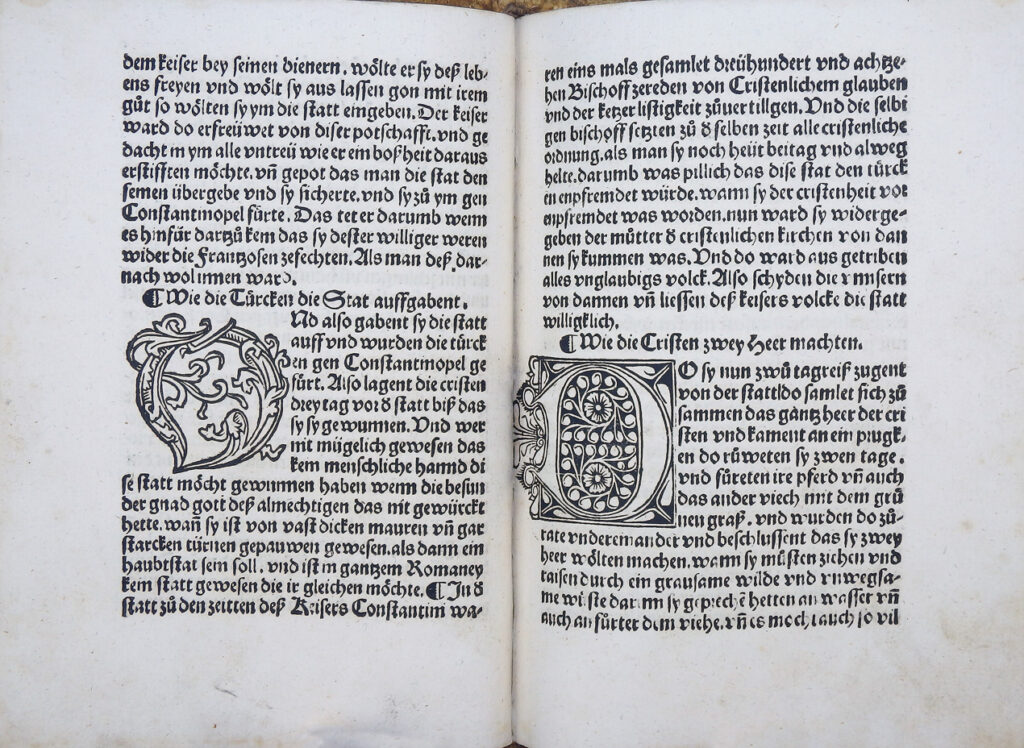 dem keiser bey seinen dienern. wölte er sy deß leb-
ens freyen vnd wölt sy aus lassen gon mit irem
gůt so wölten sy ym die statt eingeben. Der keiser
ward do erfreüwet von diser potschafft. vnd ge
dacht in ym alle vntreü wie er ein boßheit daraus
erstifften möchte. vñ gepot das man die stat den
seinen übergebe vnd sy sicherte. vnd sy zů ym gen
Constantinopel fürte. Das tet er darumb wenn
es hinfür dartzů kem das sy dester williger weren
wider die Frantzosen zefechten. Als man deß dar-
nach wol innen ward.
¶ Wie die Türcken die Stat auffgabent.
Nd also gabent sy die statt
auff vnd wurden die türck
en gen Constantinopel ge
fürt. Also lagent die cristen
drey tag vor d̕ statt biß das
sy sy gewunnen. Vnd wer
nit mügelich gewesen das
kein menschliche hannd di
se statt möcht gewunnen haben wenn die besun
der gnad gott deß almechtigen das nit gewürckt
hette. wañ sy ist von vast dicken mauren vñ gar
starcken türnen gepauwen gewesen. als dann ein
haubtstat sein soll. vnd ist in gantzem Romaney
kein statt gewesen die ir gleichen möchte. ¶ In d̕
statt zů den zeitten deß Keisers Constantini wa-
ren eins mals gesamlet dreühundert vnd achtze-
hen Bischoff zereden von Cristenlichem glauben
vnd der ketzer listigkeit zůuertillgen. Vnd die selbi
gen bischoff setzten zů d̕ selben zeit alle cristenliche
ordnung. als man sy noch heüt beitag vnd alweg
helte. darumb was pillich das dise stat den türck
en enpfremdet würde. wann sy der cristenheit vor
enpfremdet was worden. nun ward sy widerge-
geben der můtter d̕ cristenlichen kirchen von dan
nen sy kummen was. Vnd do ward aus getriben
alles vnglaubigs volck. Also schyden die vnnsern
von dannen vñ liessen deß keisers volcke die statt
willigklich.
¶ Wie die Cristen zwey Heer machten.
O sy nun zwů tagreiß zugent
von der statt do samlet sich zů
sammen das gantz heer der cri
sten vnd kament an ein prugk-
en do růweten sy zwen tage.
vnd fůreten ire pferd vñ auch
das ander viech mit dem grů
nen graß. vnd wurden do zů-
rate vndereinander vnd beschlussent das sy zwey
heer wölten machen. wann sy můsten ziehen vnd
raisen durch ein grausame wilde vnd vnwegsa-
me wůste darinn sy geprechē hetten an wasser vñ
auch an fůtter dem viehe. vñ es mocht auch so vil